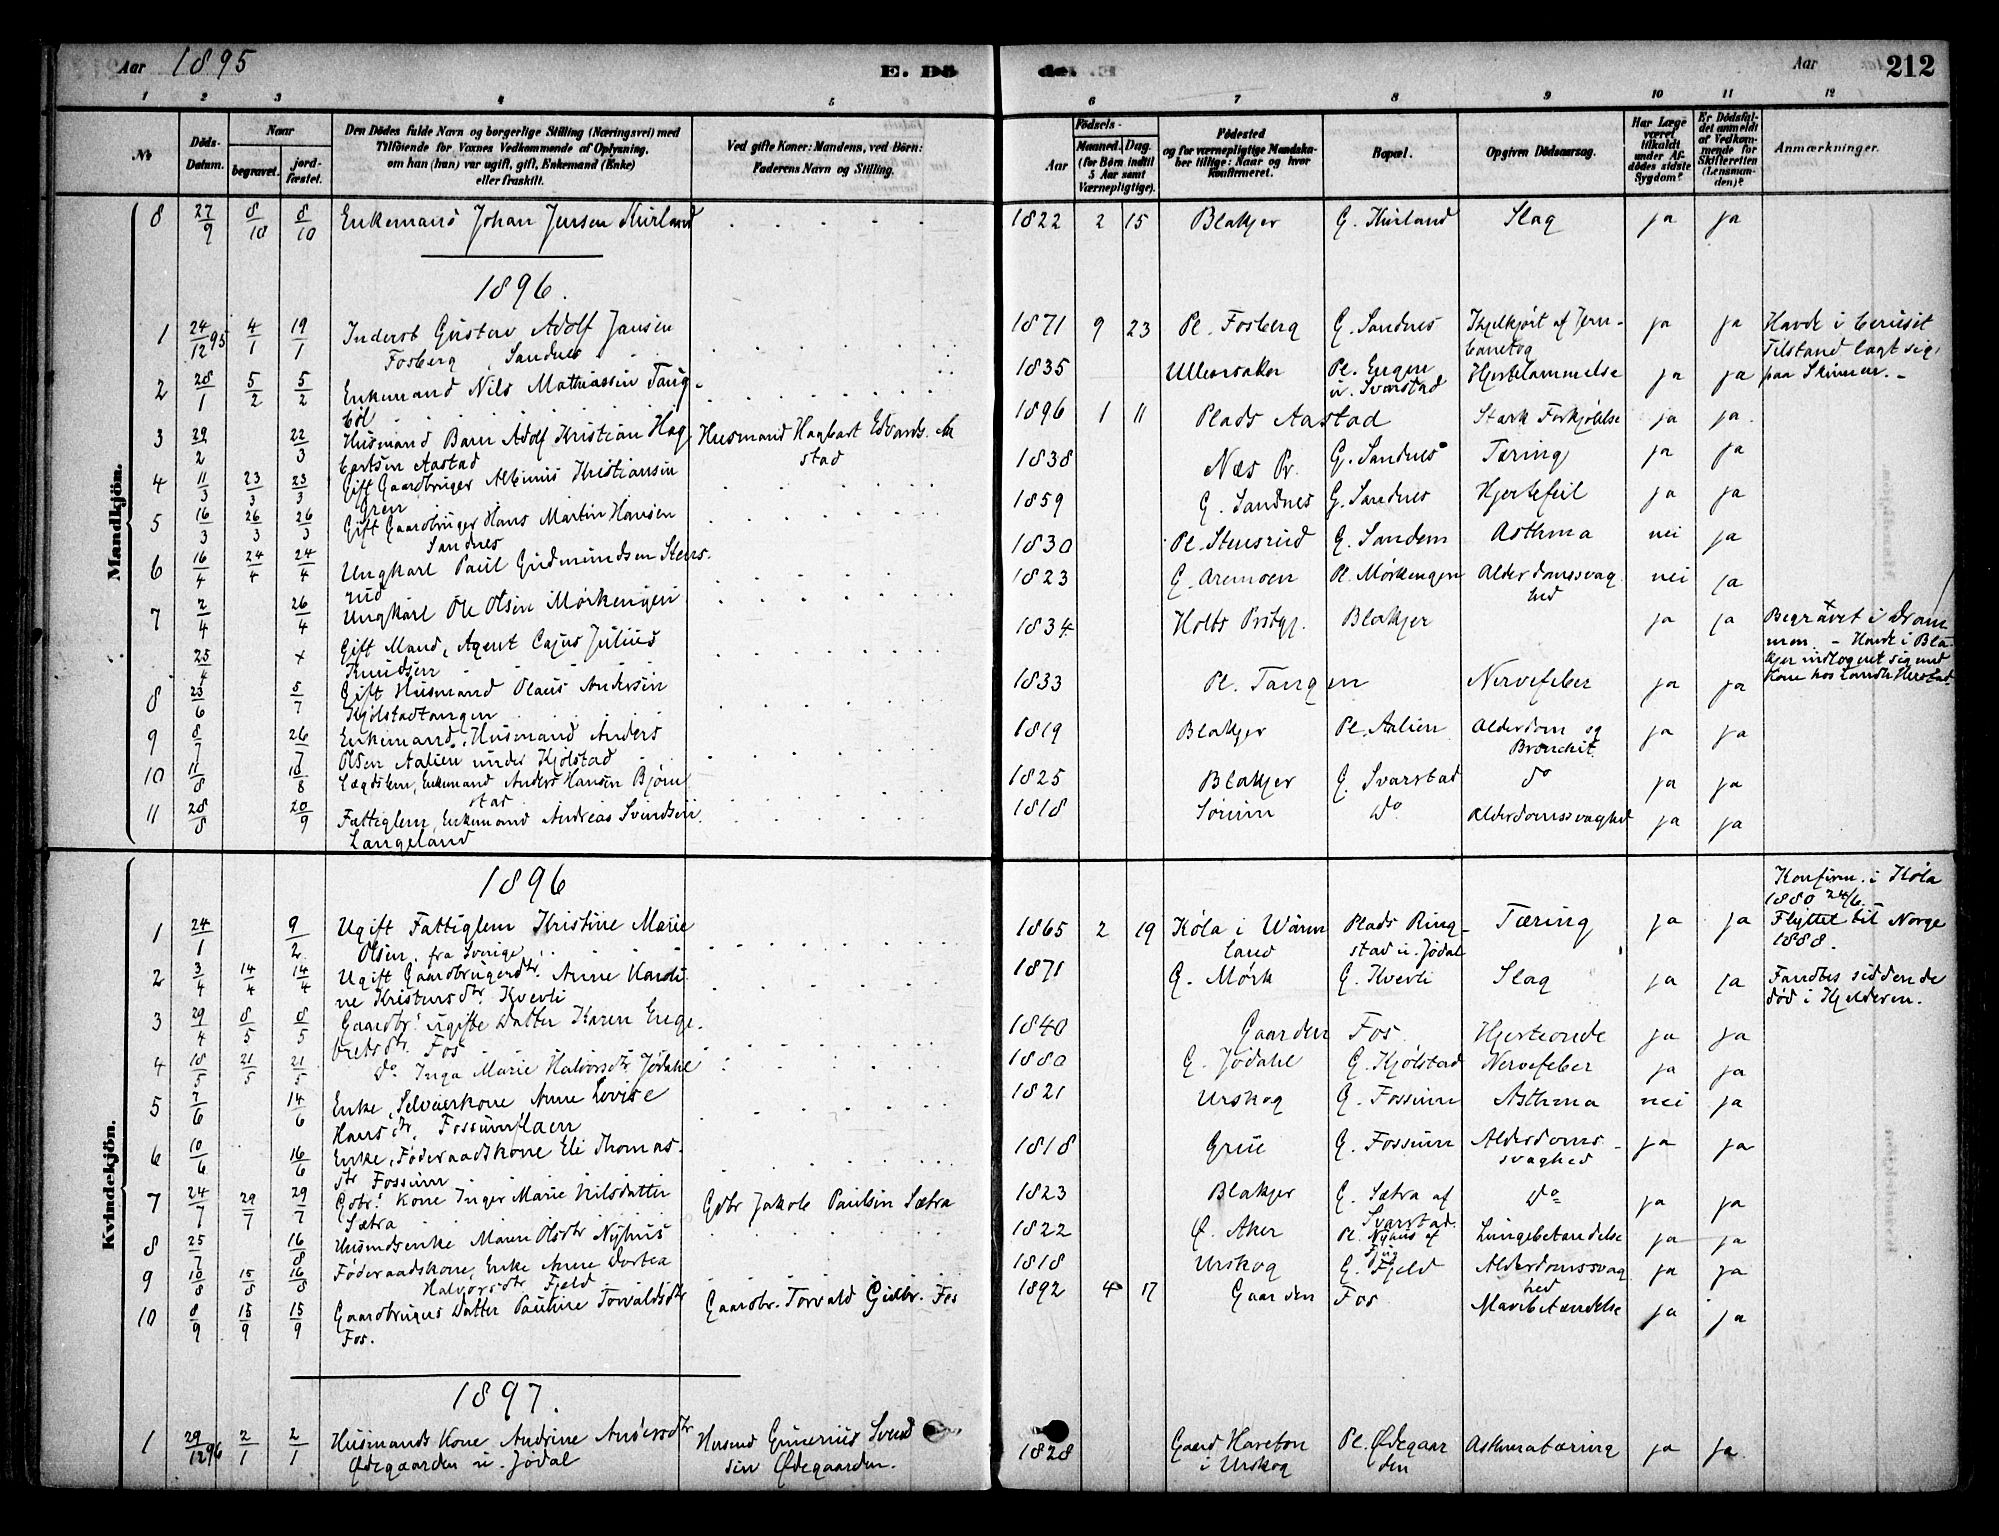 Aar 1895 E. Dö de. Aar 212
1 2 3 4 5 6 7 8 9 10 11 12
№
Döds-Datum.
Naar
begravet.
jord-fæstet.
Den Dödes fulde Navn og borgerlige Stilling (Næringsvei) med
Tilföiende for Voxnes Vedkommende af Oplysning,
om han (hun) var ugift, gift, Enkemand (Enke)
eller fraskilt.
Ved gifte Koner: Mandens, ved Börn:
Faderens Navn og Stilling.
Födsels-
Aar
Maaned. Dag.
(for Börn indtil
5 Aar samt
Værnepligtige).
Födested
og for værnepligtige Mandska-
ber tillige: Naar og hvor
Konfirmeret.
Bopæl.
Opgiven Dödsaarsag.
Har Læge
været
tilkaldt
under Af-
dödes sidste
Sygdom?
Er Dödsfal-
det anmeldt
af Vedkom-
mende for
Skifteretten
(Lensman-
den)?
Anmærkninger.
Mandkjön.
8 27/9 8/10 8/10 Enkemand Johan Jensen Kurland 1822 2 15 Blakjer G. Kurland Slag ja ja
1896.
1 24/12 95 4/1 19/1 Inderst Gustav Adolf Jansen 1871 9 23 Pl. Fosberg G. Sandnes Ihjelkjørt af Jern- ja ja Havde i beruset
Fosberg, Sandnes banetog Tilstand lagt sig
2 28/1 5/2 5/2 Enkemand Nils Mathiassen Tang- 1835 Ullensaker Pl. Engen Hjertelammelse ja ja paa Skinner.
böl u. Svarstad
3 29/2 22/3 Husmand Barn Adolf Kristian Hag Husmand Hagbart Edvards. Aa 1896 1 11 Plads Aastad Stærk Forkjölelse ja ja
bartsen Aastad stad
4 11/3 23/3 23/3 Gift Gaardbruger Albinus Kristiansen 1838 Næs Pr. G. Sandnes Tæring ja ja
Gren
5 16/3 26/3 26/3 Gift Gaardbruger Hans Martin Hansen 1859 G. Sandnes G. Sandnes Hjertefeil ja ja
Sandnes
6 16/4 24/4 24/4 Ungkarl Paul Gudmundsen Stens- 1830 Pl. Stensrud G. Sandem Asthma nei ja
rud
7 2/4 26/4 Ungkarl Ole Olsen Mörkengen 1823 G. Aremoen Pl. Mörkengen Alderdomssvag nei ja
hed
25/4 × Gift Mand, Agent Cajus Julius 1834 Holts Prstgj. Blakjer ja ja Begravet i Dram
Knudsen men. - Havde i Bla-
kjer indlogeret sig med
8 23/6 5/7 Gift Husmand Olaus Andersen 1833 Pl. Tangen Nervefeber ja ja Kone hos Landh. Herstad
Kjölstadtangen
9 8/7 26/7 Enkemand, Husmand Anders 1819 Blakjer Pl. Aalien Alderdom og ja ja
Olsen Aalien under Kjölstad Bronchit
10 11/8 18/8 Lægdslem, Enkemand Anders Hansen Björn 1825 Blakjer G. Svarstad do ja ja
stad
11 28/8 20/9 Fattiglem, Enkemand Andreas Svendsen 1818 Sörum do Alderdomssvaghed ja ja
Langeland
Kvindekjön.
1896
Konfirm. i Köla
1880 24/6.
1 24/1 9/2 Ugift Fattiglem Kristine Marie 1865 2 19 Köla i Wärm Plads Ring- Tæring ja ja Flyttet til Norge
Olsen, fra Sverige land stad u. Jödal 1888.
2 3/4 14/4 14/4 Ugift Gaardbrugerdtr. Anne Karoli 1871 G. Mörk G. Kvevli Slag ja ja Fandtes siddende
ne Kristensdtr. Kvevli död i Kjelderen.
3 29/4 8/5 8/5 Gaardbr.s ugifte Datter Karen Enge- 1840 Gaarden Fos Hjerteonde ja ja
bretsdtr. Fos
4 18/5 21/5 21/5 do Inga Marie Halvorsdtr Jödahl 1880 G. Jödahl G. Kjölstad Nervefeber ja ja
5 7/6 14/6 Enke, Selveierkone Anne Lovise 1821 Urskog G. Fossum Asthma nei ja
Hansdtr. Fossumflaen
6 10/6 16/6 Enke, Föderaadskone Eli Thomas- 1818 Grue G. Fossum Alderdoms- ja ja
dtr Fossum svaghed
7 24/7 29/7 29/7 Gdbr.s Kone Inger Marie Nilsdatter Gdbr Jakob Paulsen Sætra 1823 Blakjer G. Sætra af do ja ja
Sætra Svarstad
8 25/7 16/8 Husmdsenke Maren Olsdtr Nyhus 1822 Ö. Aker Pl. Nyhus af Lungebetændelse ja ja
9 10/8 15/8 16/8 Föderaadskone, Enke Anne Dortea 1818 Urskog G. Fjeld Alderdomssvag ja ja
Halvorsdtr Fjeld hed
10 8/9 15/9 15/9 Gaardbrugers Datter Pauline Torvaldsdtr Gaardbr. Torvald Gudbr. Fos 1892 4 17 Gaarden Fos Mavebetændelse ja ja
Fos.
1897.
1 29/12 96 2/1 2/1 Husmands Kone Andrine Andersdtr Husmd Gunerius Svend 1828 Gaard Haneton Pl. Ödegaar Asthmatæring ja ja
Ödegaarden u. Jödal sen Ödegaarden. i Urskog den